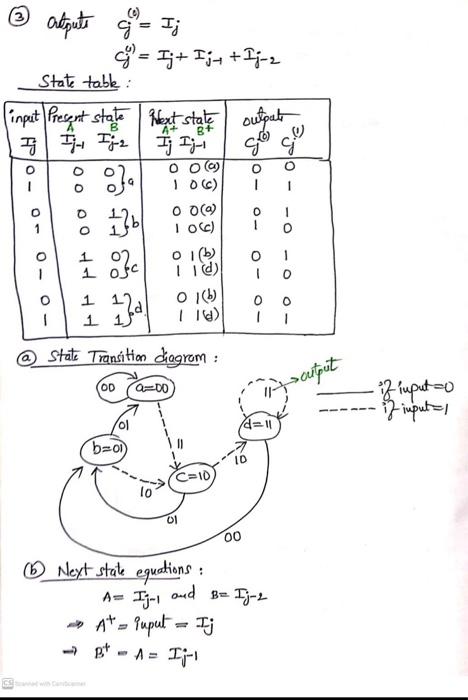 ③ outputs Cj^(0) = Ij
Cj^(1) = Ij + Ij-1 + Ij-2
State table :
input Present state Next state outputs
A B A+ B+
Ij Ij-1 Ij-2 Ij Ij-1 Cj^(0) Cj^(1)
0 0 0 } a 0 0 (a) 0 0
1 0 0 1 0 (c) 1 1
0 0 1 } b 0 0 (a) 0 1
1 0 1 1 0 (c) 1 0
0 1 0 } c 0 1 (b) 0 1
1 1 0 1 1 (d) 1 0
0 1 1 } d 0 1 (b) 0 0
1 1 1 1 1 (d) 1 1
ⓐ State Transition diagram :
00 a=00
11 → output
if input=0
if input=1
01
d=11
b=01 11
10
10 c=10
01
00
ⓑ Next state equations :
A = Ij-1 and B = Ij-2
⇒ A+ = input = Ij
⇒ B+ = A = Ij-1
CS Scanned with CamScanner